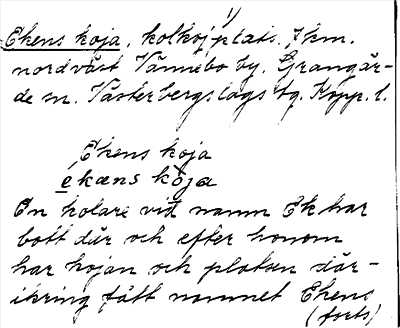 1)
Ekens koja, kolkojplats, 7 km.
nordväst Vännebo by, Grangär-
de sn. Västerbergslags tg. Kopp. l.
Ekens koja
ékæns kòja
En kolare vid namn Ek har
bott där och efter honom
har kojan och platsen där-
ikring fått namnet Ekens
(forts)